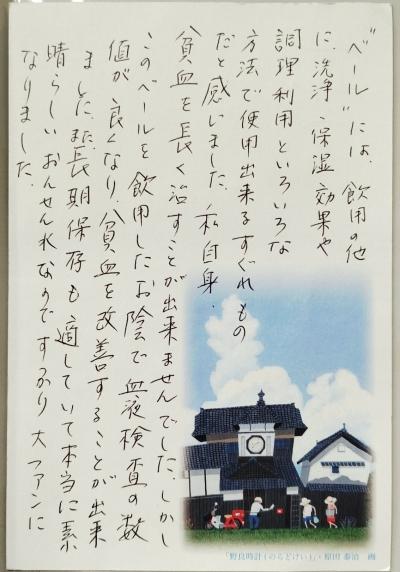 "ベール"には、飲用の他
に、洗浄・保湿効果や
調理利用といろいろな
方法で使用出来るすぐれもの
だと感じました。私自身、
貧血を長く治すことが出来ませんでした。しかし
このベールを飲用したお陰で血液検査の数
値が良くなり、貧血を改善することが出来
ました。また、長期保存も適していて本当に素
晴らしいおんせん水なのですっかり大ファンに
なりました。
「野良時計(のらどけい)」・原田 泰治 画